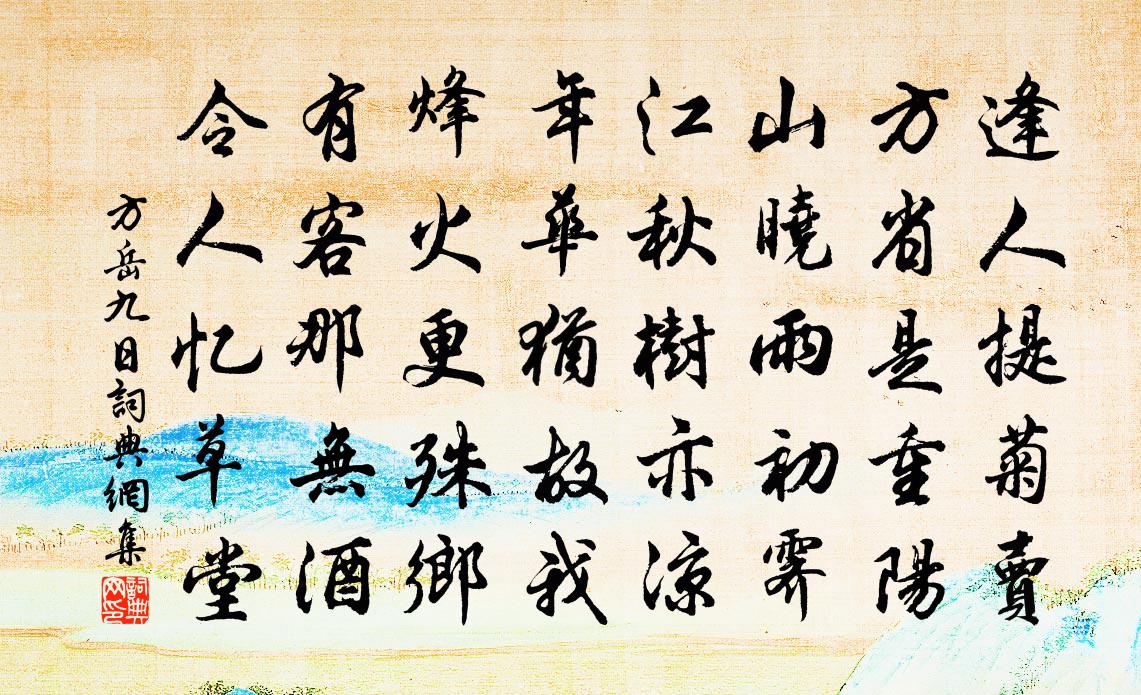 逢人提菊賣
方省是重陽
山曉雨初霽
江秋樹亦涼
年華猶故我
烽火更殊鄉
有客那無酒
令人忆草堂
方岳九日詞典網集
詞典网印